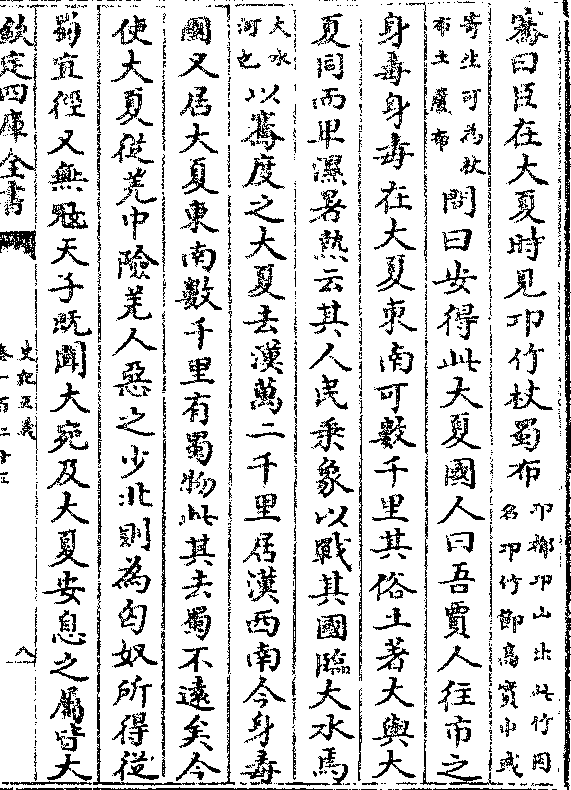 騫曰臣在大夏時見卭竹杖蜀布卭都卭山出此竹因名卭竹節髙實中或
寄生可為杖布土蘆布問曰安得此大夏國人曰吾賈人往市之
身毒身毒在大夏東南可數千里其俗土著大與大
夏同而卑濕暑熱云其人民乘象以戰其國臨大水焉
大水河也以騫度之大夏去漢萬二千里居漢西南今身毒
國又居大夏東南數千里有蜀物此其去蜀不逺矣今
使大夏從羌中險羌人惡之少北則為匈奴所得從
蜀宜徑又無冦天子既聞大宛及大夏安息之屬皆大
欽定四庫全書
史記正義
卷一百二十三
八